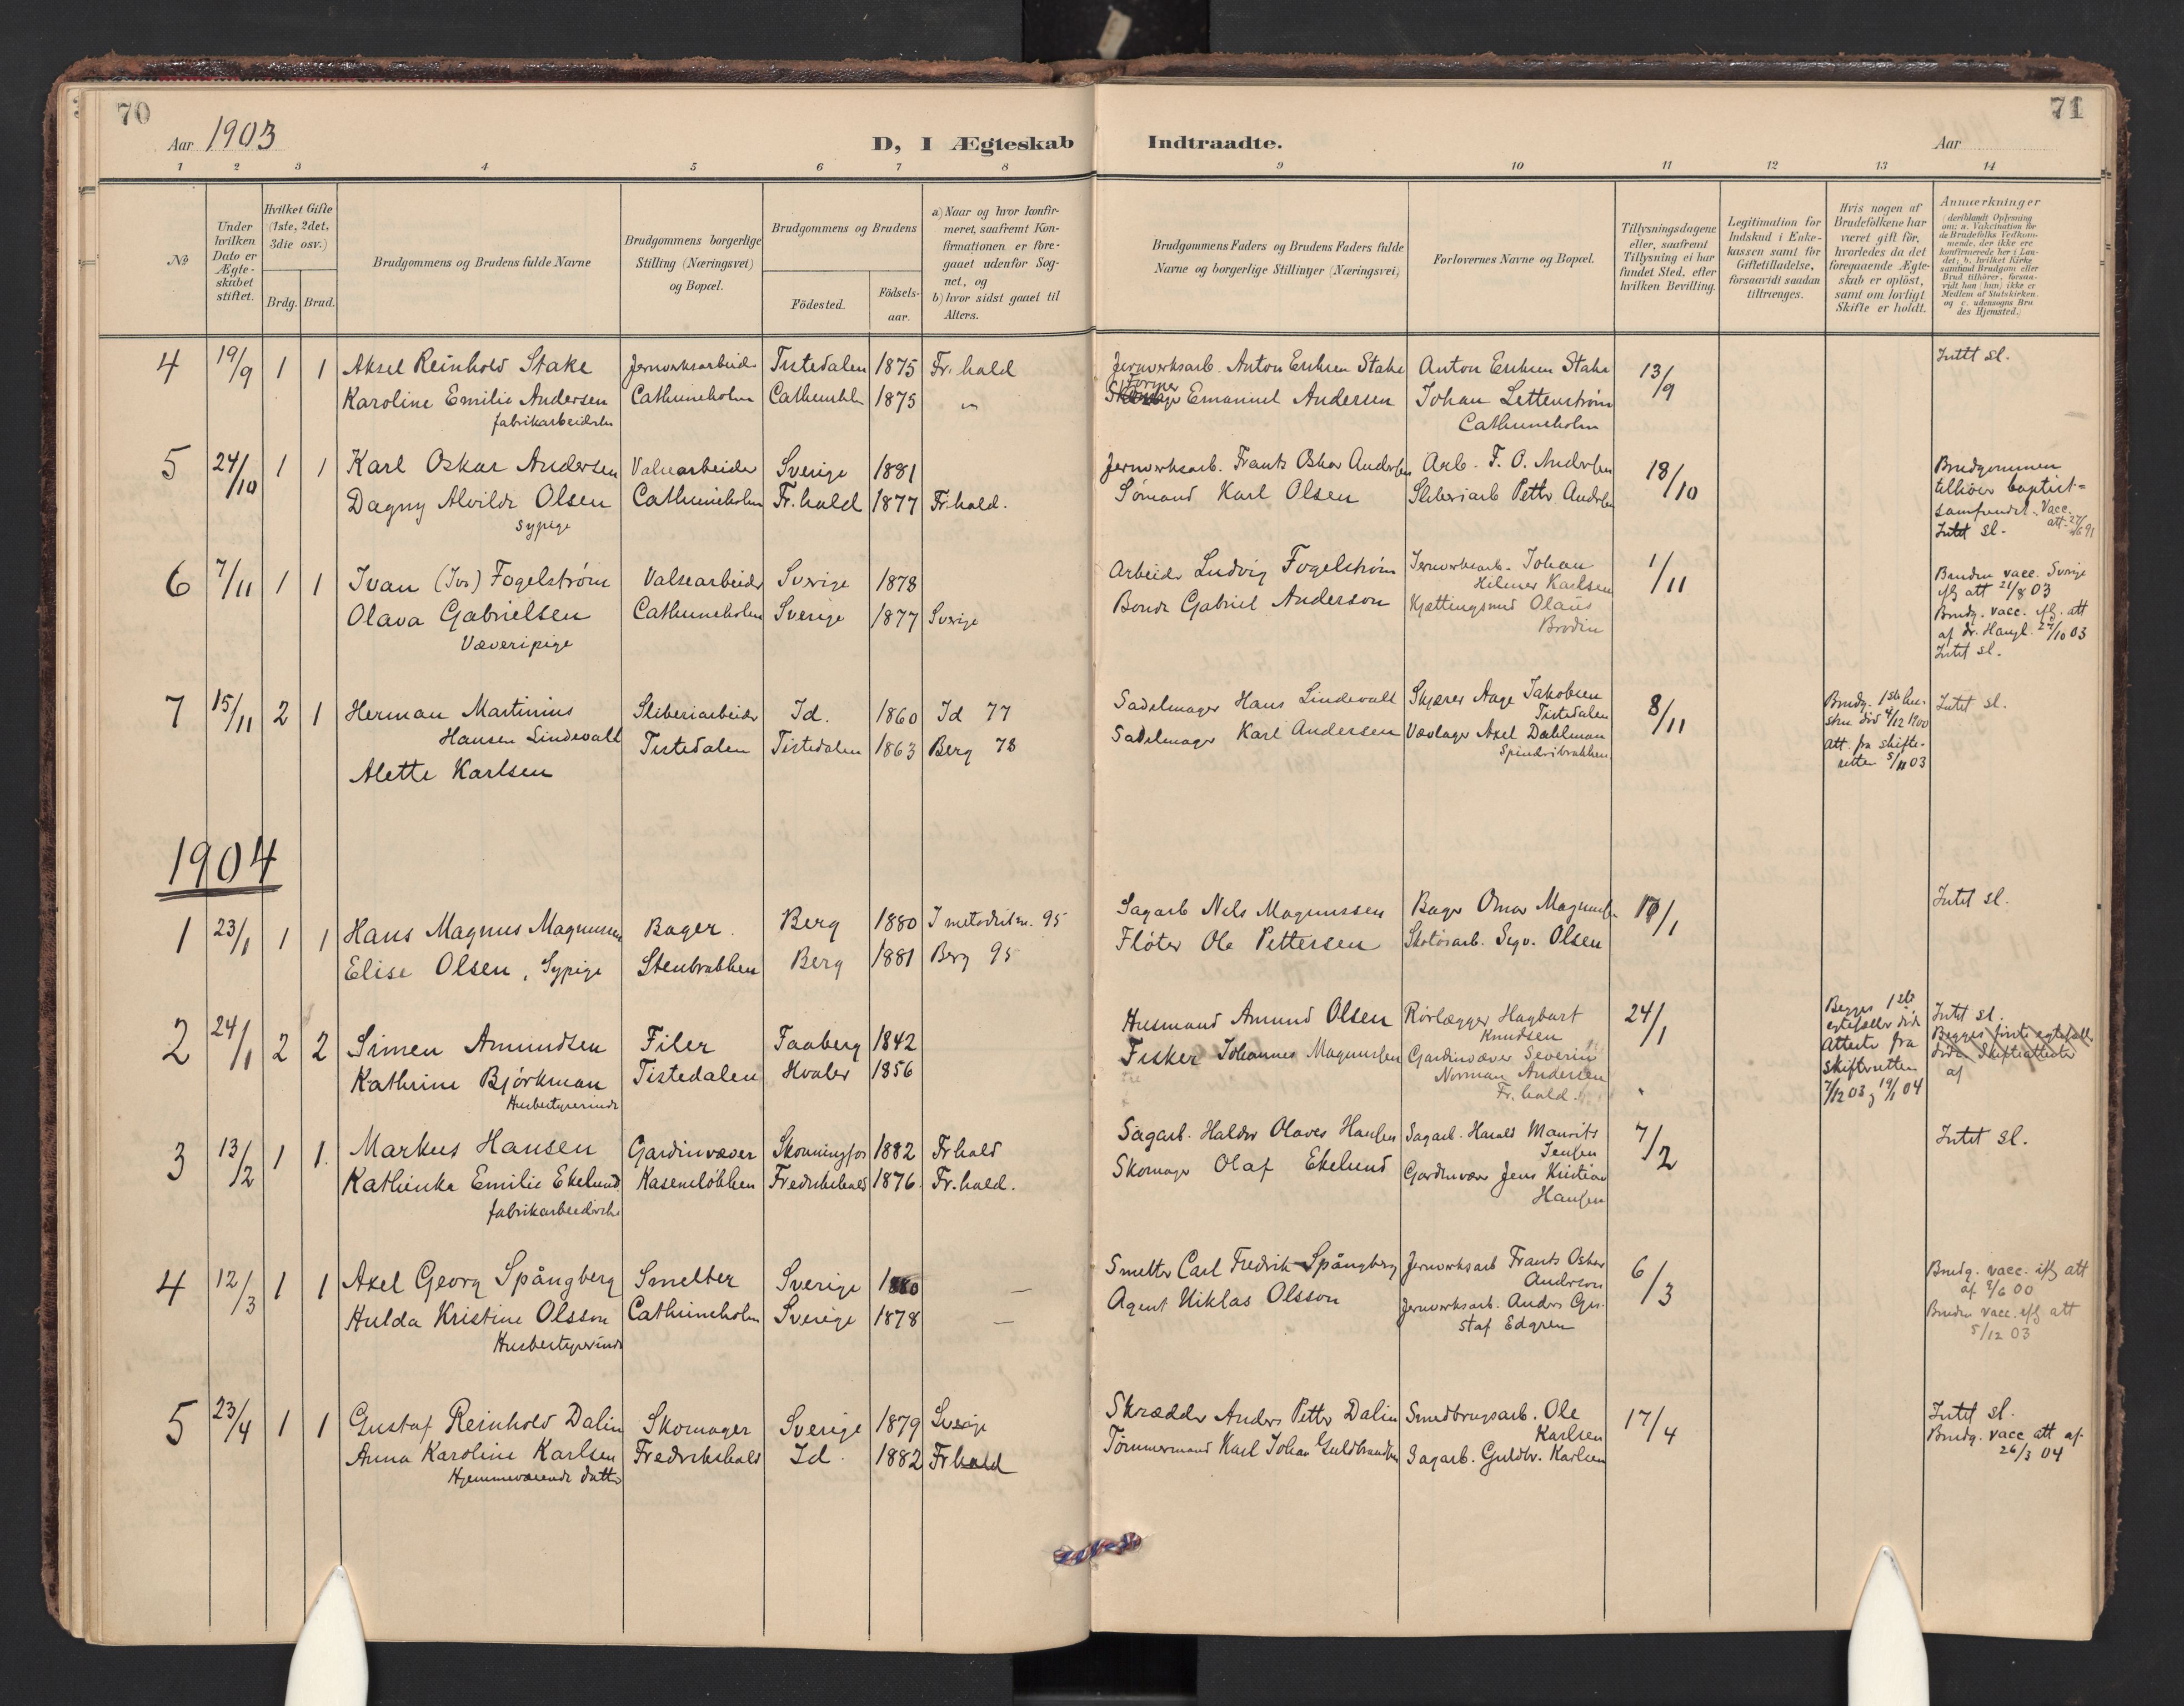 70
71
Aar 1903
D, I Ægteskab Indtraadte.
Aar
1 2 3 4 5 6 7 8 9 10 11 12 13 14
No
Under hvilken Dato er Ægteskabet stiftet.
Hvilket Gifte (1ste, 2det, 3die osv.)
Brdg. Brud.
Brudgommens og Brudens fulde Navne
Brudgommens borgerlige Stilling (Næringsvei) og Bopæl.
Brudgommens og Brudens
Födested.
Födsels-aar.
a) Naar og hvor konfirmeret, saafremt Konfirmationen er foregaaet udenfor Sognet, og
b) hvor sidst gaaet til Alters.
Brudgommens Faders og Brudens Faders fulde Navne og borgerlige Stillinger (Næringsvei)
Forlovernes Navne og Bopæl.
Tillysningsdagene eller, saafremt Tillysning ei har fundet Sted, efter hvilken Bevilling.
Legitimation for Indskud i Enkekassen samt for Giftetilladelse, forsaavidt saadan tiltrænges.
Hvis nogen af Brudefolkene har været gift för, hvorledes da det foregaaende Ægteskab er oplöst, samt om lovligt Skifte er holdt.
Anmærkninger
(deriblandt Oplysning om: a. Vakcination for de Brudefolks Vedkommende, der ikke ere konfirmerede her i Landet; b. hvilket Kirkesamfund Brudgom eller Brud tilhörer, forsaavidt han (hun) ikke er Medlem af Statskirken. og c. udensogns Brudes Hjemsted.)
4 19/9 1 1 Aksel Reinhold Stake Jernverksarbeider Tistedalen 1875 Fr.hald Jernverksarb. Anton Eriksen Stake Anton Eriksen Stake 13/9 Intet sl.
Karoline Emilie Andersen Cathrineholm Cathrinehlm 1875 " Former Emanuel Andersen Johan Lettenstrøm
fabrikarbeiderske Cathrineholm
5 24/10 1 1 Karl Oskar Andersen Valsearbeider Sverige 1881 Jernverksarb. Frants Oskar Andersen Arb. F. O. Andersen 18/10 Brudgommen
Dagny Alvilde Olsen Cathrineholm Fr.hald 1877 Fr.hald. Sømand Karl Olsen Sliberiarb Petter Andersen tilhører baptist-
sypige samfundet. Vacc.
Intet sl. att. 27/6 91
6 7/11 1 1 Ivan (Iver) Fogelstrøm Valsearbeider Sverige 1878 Arbeider Ludvig Fogelstrøm Jernverksarb. Johan 1/11 Bruden vacc. Sverige
Hilmer Karlsen iflg att 21/8 03
Olava Gabrielsen Cathrineholm Sverige 1877 Sverige Bonde Gabriel Anderson Kjættingsmed Olaus Brudg. vacc. iflg. att
Væveripige Brodin af dr. Haugl. 27/10 03
Intet sl.
7 15/11 2 1 Herman Martinius Sliberiarbeider Id. 1860 Id 77 Sadelmager Hans Lindevall Skjærer Aage Jakobsen 8/11 Brudg. 1ste hu- Intet sl.
Hansen Lindevall Tistedalen stru død 4/12 1900
Alette Karlsen Tistedalen Tistedalen 1863 Berg 78 Sadelmager Karl Andersen Vævlager Axel Dahlman att. fra skifte-
Spinderibrakken retten 5/11 03
1904
1 23/1 1 1 Hans Magnus Magnussen Bager. Berg 1880 I metodistm. 95 Sagarb Nels Magnussen Bager Omar Magnussen /1 Intet sl.
Elise Olsen, Sypige Stenbrakken Berg 1881 Berg 95 Fløter Ole Pettersen Skotøiarb. Sigv. Olsen
2 24/1 2 2 Simen Amundsen Filer Faaberg 1842 Husmand Amund Olsen Rørlægger Hagbart 24/1 Begges 1ste Intet sl.
Knudsen egtefæller døde
Kathrine Bjørkman Tistedalen Hvaler 1856 Fisker Johannes Magnussen Gardinvæver Severin Attester fra
Husbestyrerinde Norman Andersen skifteretten
Fr.hald. 7/12 03 19/1 04
3 13/2 1 1. Markus Hansen Gardinvæver Skonningsfos 1882 Fr.hald Sagarb. Haldor Olaves Hansen Sagarb. Harald Mauritz 7/2 Intet sl.
Jensen
Kathinka Emilie Ekelund Kaseneløkken Fredrikshald 1876. Fr.hald. Skomager Olaf Ekelund Gardinvæver Jens Kristian
fabrikarbeiderske Hansen
4 12/3 1 1 Axel Georg Spångberg Smelter Sverige 1880 — Smelter Carl Fredrik Spångberg Jernverksarb Frants Oskar 6/3 Brudg. vacc. iflg att
Anderson af 9/6 00
Hulda Kristine Olsson Cathrineholm Sverige 1878 — Agent Niklas Olsson Jernverksarb. Anders Gu- Bruden vacc. iflg att
Husbestyrerinde staf Edgren 5/12 03
5 23/4 1 1 Gustaf Reinhold Dalin Skomager Sverige 1879 Sverige Skrædder Anders Petter Dalin Smedbrugsarb. Ole 17/4 Intet sl.
Karlsen Brudg. vacc att af
Anna Karoline Karlsen Fredrikshald Id. 1882 Fr.hald Tømmermand Karl Johan Guldbrandsen Sagarb. Guldbr. Karlsen 26/3 04
Hjemmeværende datter